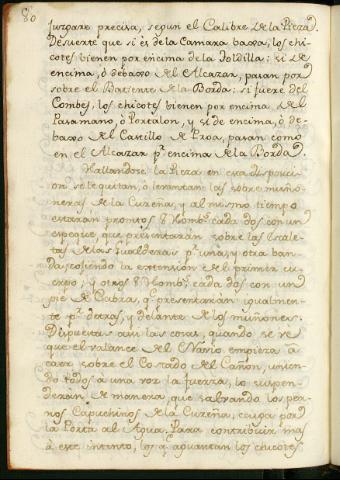 80
juzgare precisa, segun el Calibre de la Pieza.
Desuerte que si es de la Camara baxa, los chi-
cotes vienen por encima de la Toldilla: si de
encima, ó debaxo del Alcazar, pasan por
sobre el Batiente de la Borda: si fuere del
Combes, los chicotes vienen por encima del
Pasamano, ó Portalon, y si de encima, ó de-
baxo del Castillo de Proa, pasan como
en el Alcazar pr. encima de la Borda.
Hallandose la Pieza en esta disposici-
on se le quitan, ó levantan las sobremuño-
neras de la Cureña, y al mismo tiempo
estarán prontos 8 Hombs. cada dos con un
espeque que presentarán sobre las Escale-
tas de las Gualderas pr. una, y otra ban-
da cojiendo la extension del primer cu-
erpo; y otros 8 Hombs. cada dos con un
pie de Cabra, q. presentarán igualmen-
te pr. detras, y delante de los muñones.
Dispuestas asi las cosas, quando se vé
que el valance del Navio empieza á
caer sobre el Costado del Cañon, unien-
do todos á una voz la fuerza, lo suspen-
derán de manera, que salvando los per-
nos Capuchinos de la Cureña, caiga por
la Porta al Agua. Para contribuir mas
á este intento, los q. aguantan los chicotes